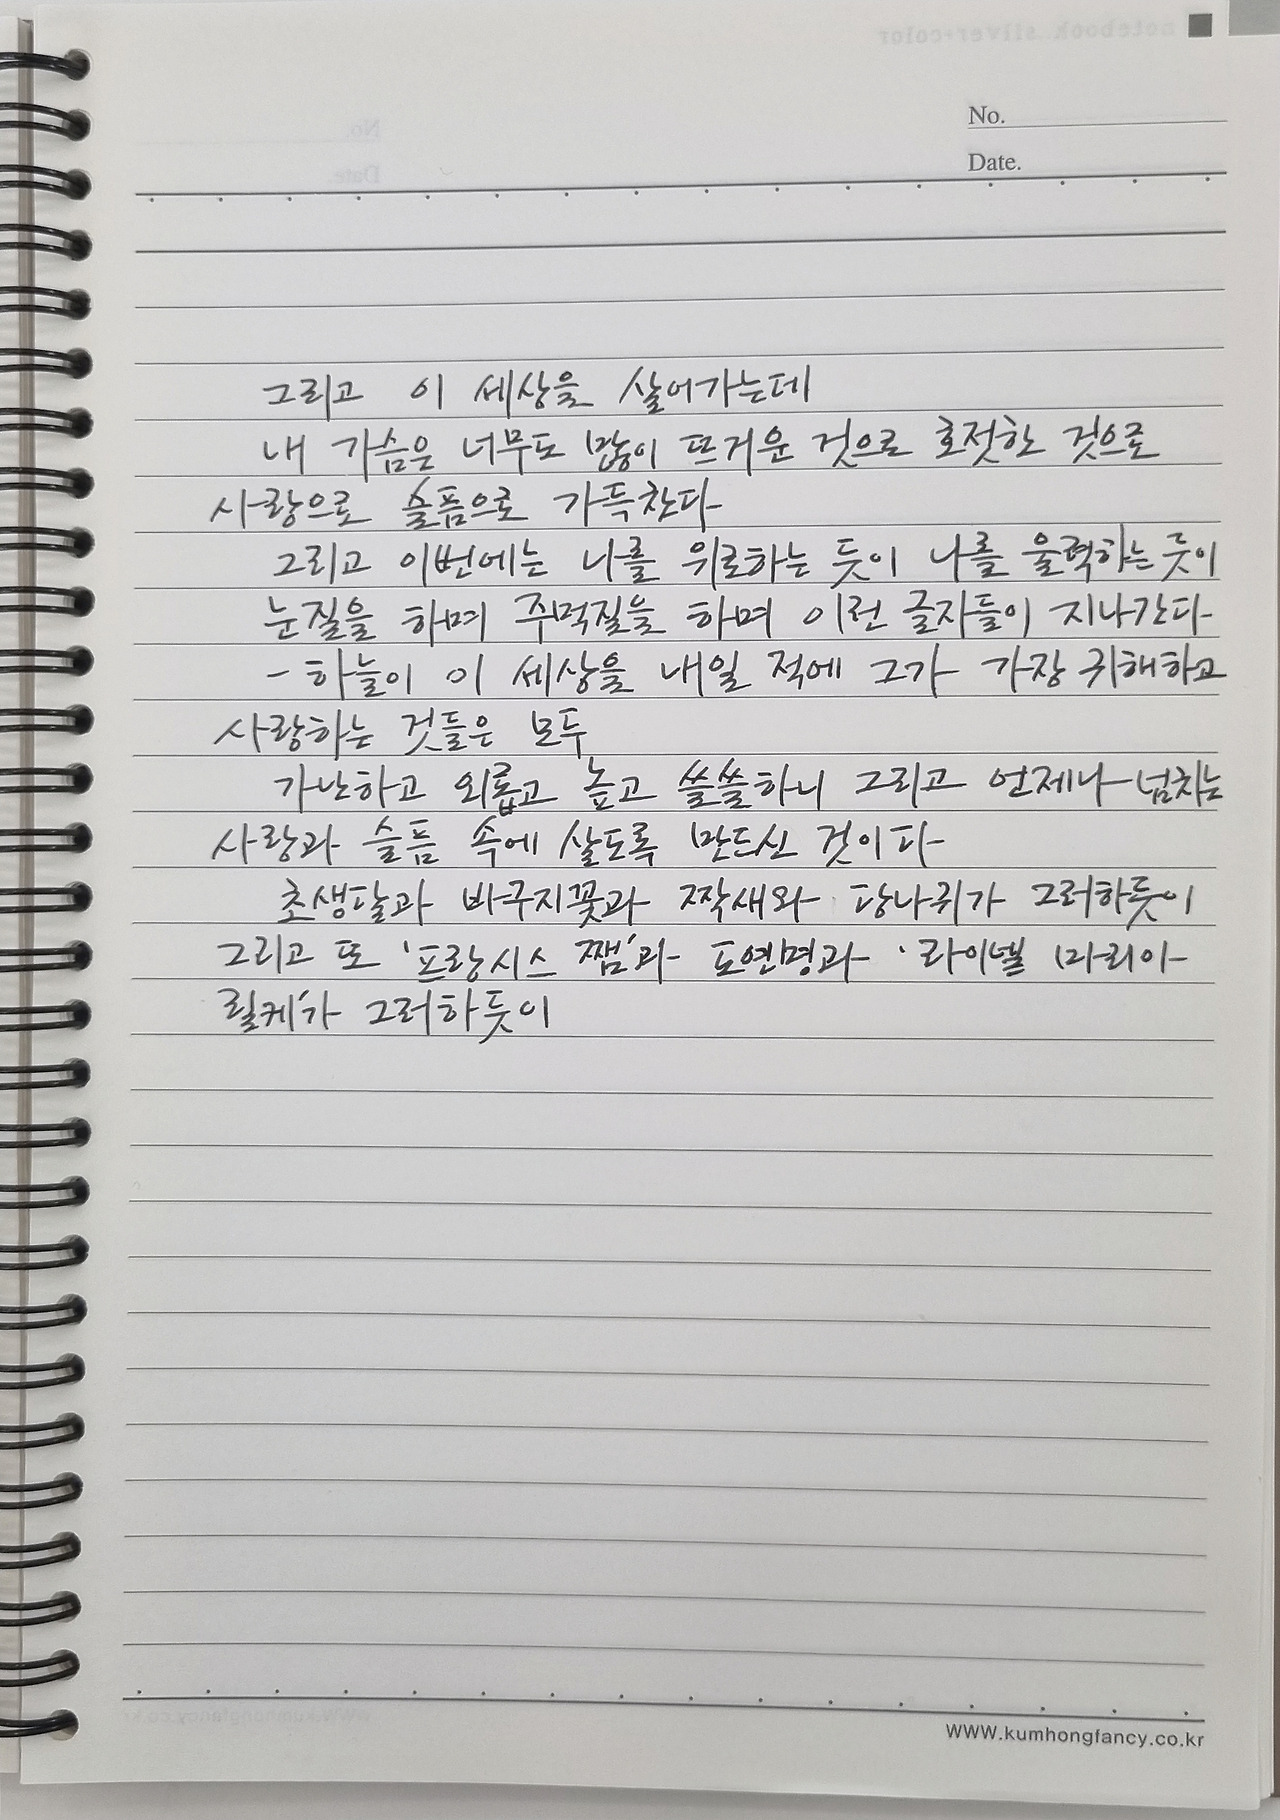 notebook silver+color
No.
Date.
No.
Date.
그리고 이 세상을 살어가는데
내 가슴은 너무도 많이 뜨거운 것으로 호젓한 것으로
사랑으로 슬픔으로 가득찬다
그리고 이번에는 나를 위로하는 듯이 나를 울력하는 듯이
눈질을 하며 주먹질을 하며 이런 글자들이 지나간다
- 하늘이 이 세상을 내일 적에 그가 가장 귀해하고
사랑하는 것들은 모두
가난하고 외롭고 높고 쓸쓸하니 그리고 언제나 넘치는
사랑과 슬픔 속에 살도록 만드신 것이다
초생달과 바구지꽃과 짝새와 당나귀가 그러하듯이
그리고 또 '프랑시스 쨈'과 도연명과 '라이넬 마리아
릴케'가 그러하듯이
www.kumhongfancy.co.kr
WWW.kumhongfancy.co.kr